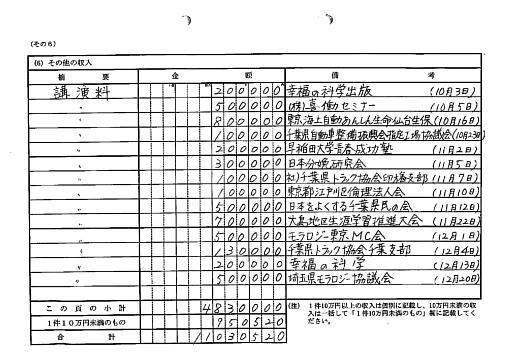 (その6)
(6) その他の収入
摘要 金額 備考
講演料 200000 幸福の科学出版 (10月3日)
〃 500000 (株)喜働セミナー (10月5日)
〃 800000 東京海上自動あんしん生命仙台生保 (10月16日)
〃 100000 千葉県自動車整備振興会指定工場協議会 (10月23日)
〃 200000 早稲田大学青春成功塾 (11月2日)
〃 300000 日本分娩研究会 (11月5日)
〃 100000 社)千葉県トラック協会印旛支部 (11月7日)
〃 100000 東京都江戸川区倫理法人会 (11月10日)
〃 500000 日本をよくする千葉県民の会 (11月12日)
〃 700000 大島地区生涯学習推進大会 (11月22日)
〃 500000 モラロジー東京MC会 (12月1日)
〃 130000 千葉県トラック協会千葉支部 (12月4日)
〃 200000 幸福の科学 (12月13日)
〃 500000 埼玉県モラロジー協議会 (12月20日)
この頁の小計 4830000
1件10万円未満のもの 950520
合計 11030520
(注) 1件10万円以上の収入は個別に記載し、10万円未満の収
入は一括して「1件10万円未満のもの」欄に記載してく
ださい。